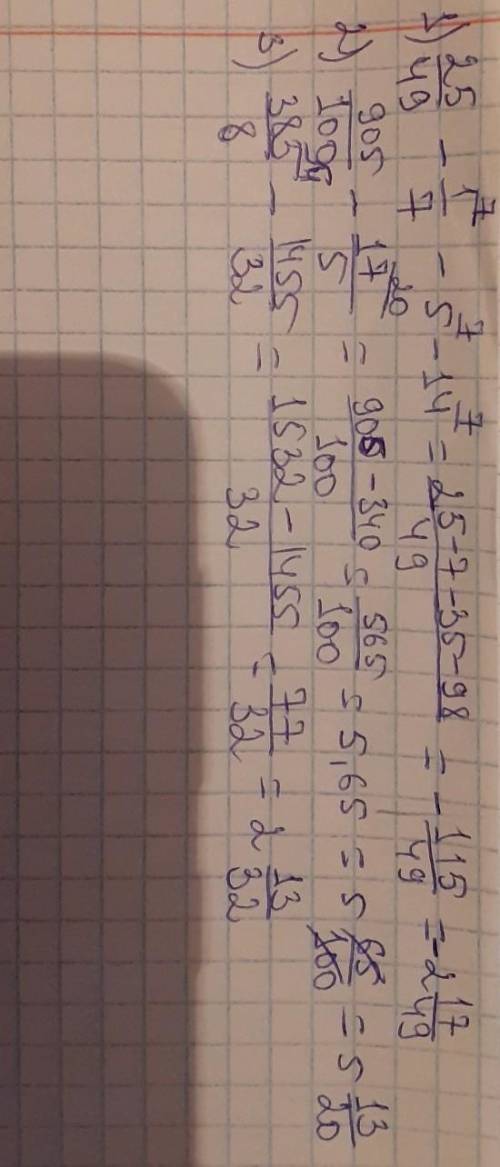 1) 25/49 - 1^7/7 - 5^7 - 14^7 = (25-7-35-98)/49 = -115/49 = -2 17/49
2) 905/100 - 17^20/5 = (905-340)/100 = 565/100 = 5,65 = 5 65/100 = 5 13/20
3) 383^4/8 - 1455/32 = (1532-1455)/32 = 77/32 = 2 13/32